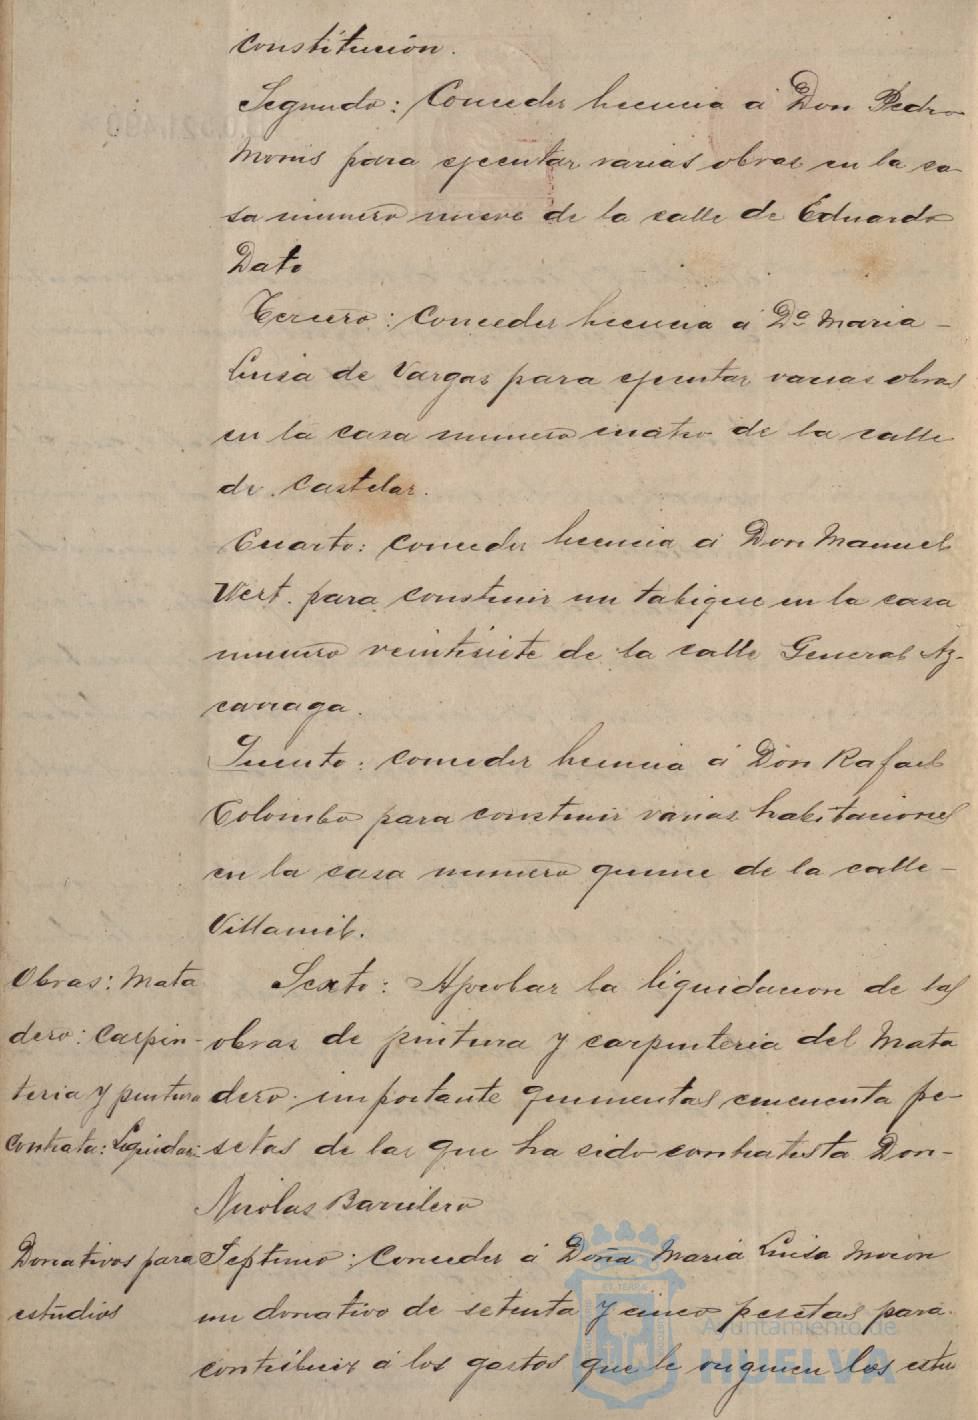 constitución.
Segundo: Conceder licencia á Don Pedro
Monis para ejecutar varias obras en la ca-
sa numero nueve de la calle de Eduardo
Dato
Tercero: Conceder licencia á Dª Maria
Luisa de Vargas para ejecutar varias obras
en la casa numero cuatro de la calle
de Castelar.
Cuarto: conceder licencia á Don Manuel
Wert. para construir un tabique en la casa
numero veintisiete de la calle General Az-
carraga.
Quinto: conceder licencia á Don Rafael
Colombo para construir varias habitaciones
en la casa numero quince de la calle
Villamil.
Obras: Mata
dero: Carpin-
teria y pintura
Contrata: Liquidac:
Sexto: Aprobar la liquidacion de las
obras de pintura y carpinteria del Mata
dero importante quinientas cincuenta pe-
setas de las que ha sido contratista Don
Nicolas Barrilero
Donativos para
estudios
Septimo: Conceder á Doña Maria Luisa Morón
un donativo de setenta y cinco pesetas para
contribuir á los gastos que le originen los estu
Ayuntamiento de
HUELVA